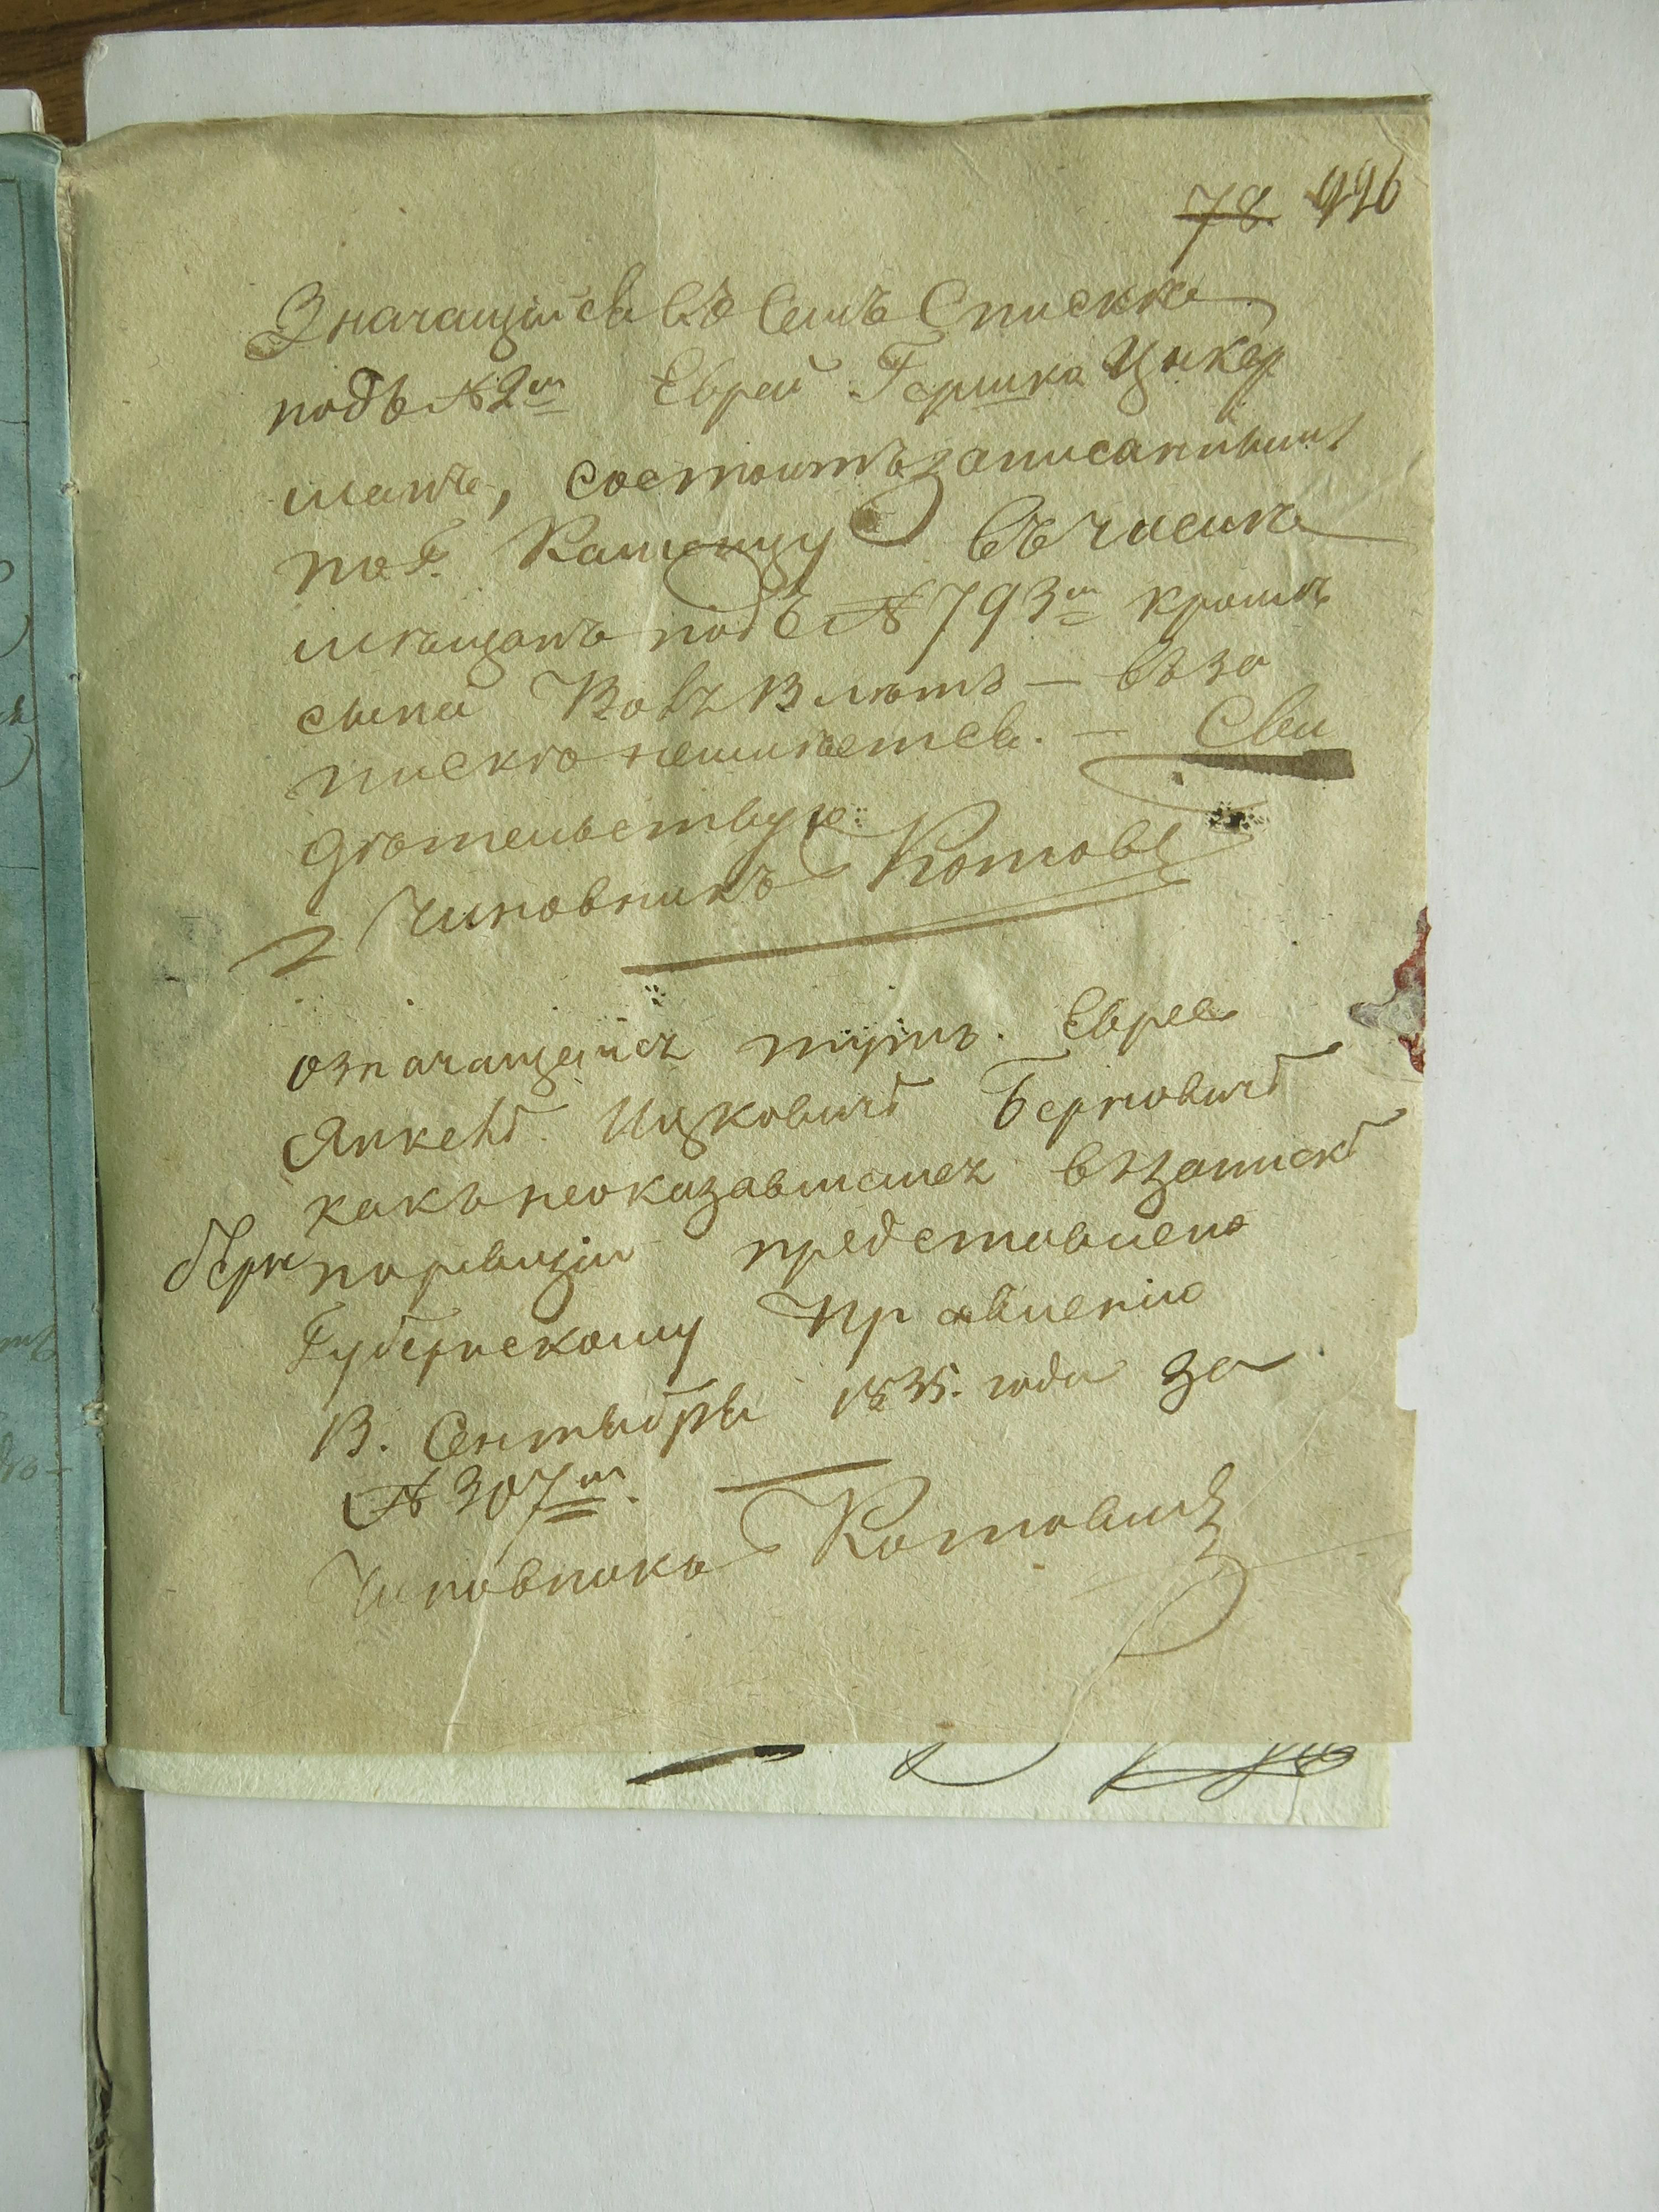 78 426
Значащійся въ семъ Списке
подъ №2м Еврей Гершко Цукер
манъ, состоитъ записанным
по г. Каменцу въ числе
мещанъ подъ № 793м кроме
сына въ за
писке неимеется. — Сви
детельствую:
Чиновникъ Котов
означащейся тутъ. Еврей
Янкель Ицковичъ Берковичъ
какъ неоказавшейся въ записке
поревизіи представлено
Губернскому Правленію
В. Сентября 1835. года за
№ 307м.
Чиновникъ Котович